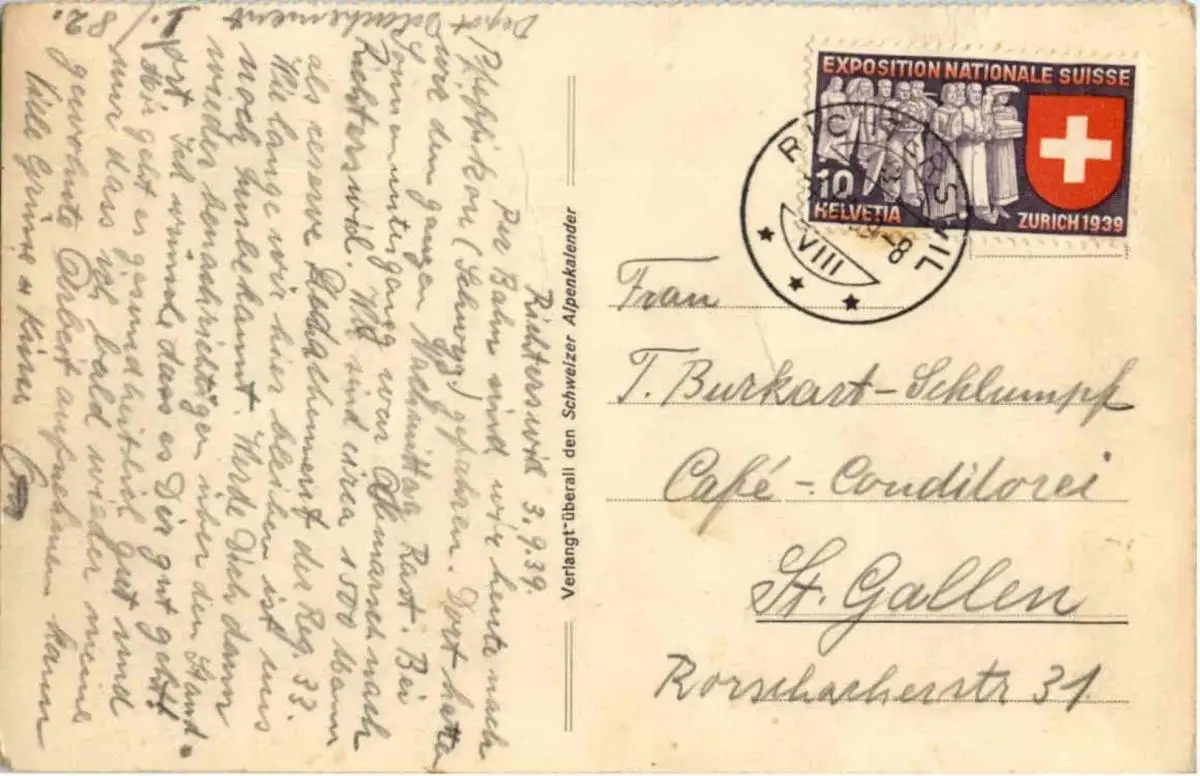 Richterswil 3.9.39.
Per Bahn sind wir heute nach
Pfäffikon (Schwyz) gefahren. Dort hatten
wir den ganzen Nachmittag Rast. Bei
Sonnenuntergang war Abmarsch nach
Richterswil. Wir sind circa 1500 Mann
als reserve Dedachement der Reg. 33.
Wie lange wir hier bleiben ist uns
noch unbekannt. Werde Dich dann
wieder benachrichtigen über den Stand-
ort. Ich wünsche dass es Dir gut geht!
Mir geht es gesundheitlich gut und
nur dass ich bald wieder meine
gewohnte Arbeit aufnehmen kann
Viele Grüsse u Küsse
Depot Detachement
I./82.
Verlangt überall den Schweizer Alpenkalender
EXPOSITION NATIONALE SUISSE
10
HELVETIA
ZURICH 1939
RICHTERSWIL
-8
VIII
Frau
T. Burkart-Schlumpf
Café - Conditorei
St. Gallen
Rorschacherstr 31